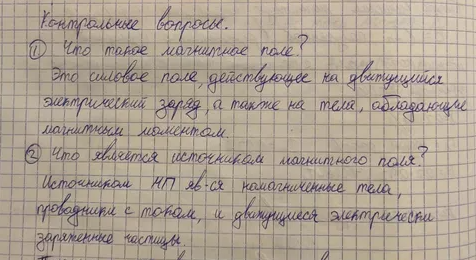 Контрольные вопросы.
① Что такое магнитное поле?
Это силовое поле, действующее на движущийся
электрический заряд, а также на тела, обладающие
магнитным моментом.
② Что является источником магнитного поля?
Источником МП яв-ся намагниченные тела,
проводники с током, и движущиеся электрически
заряженные частицы.